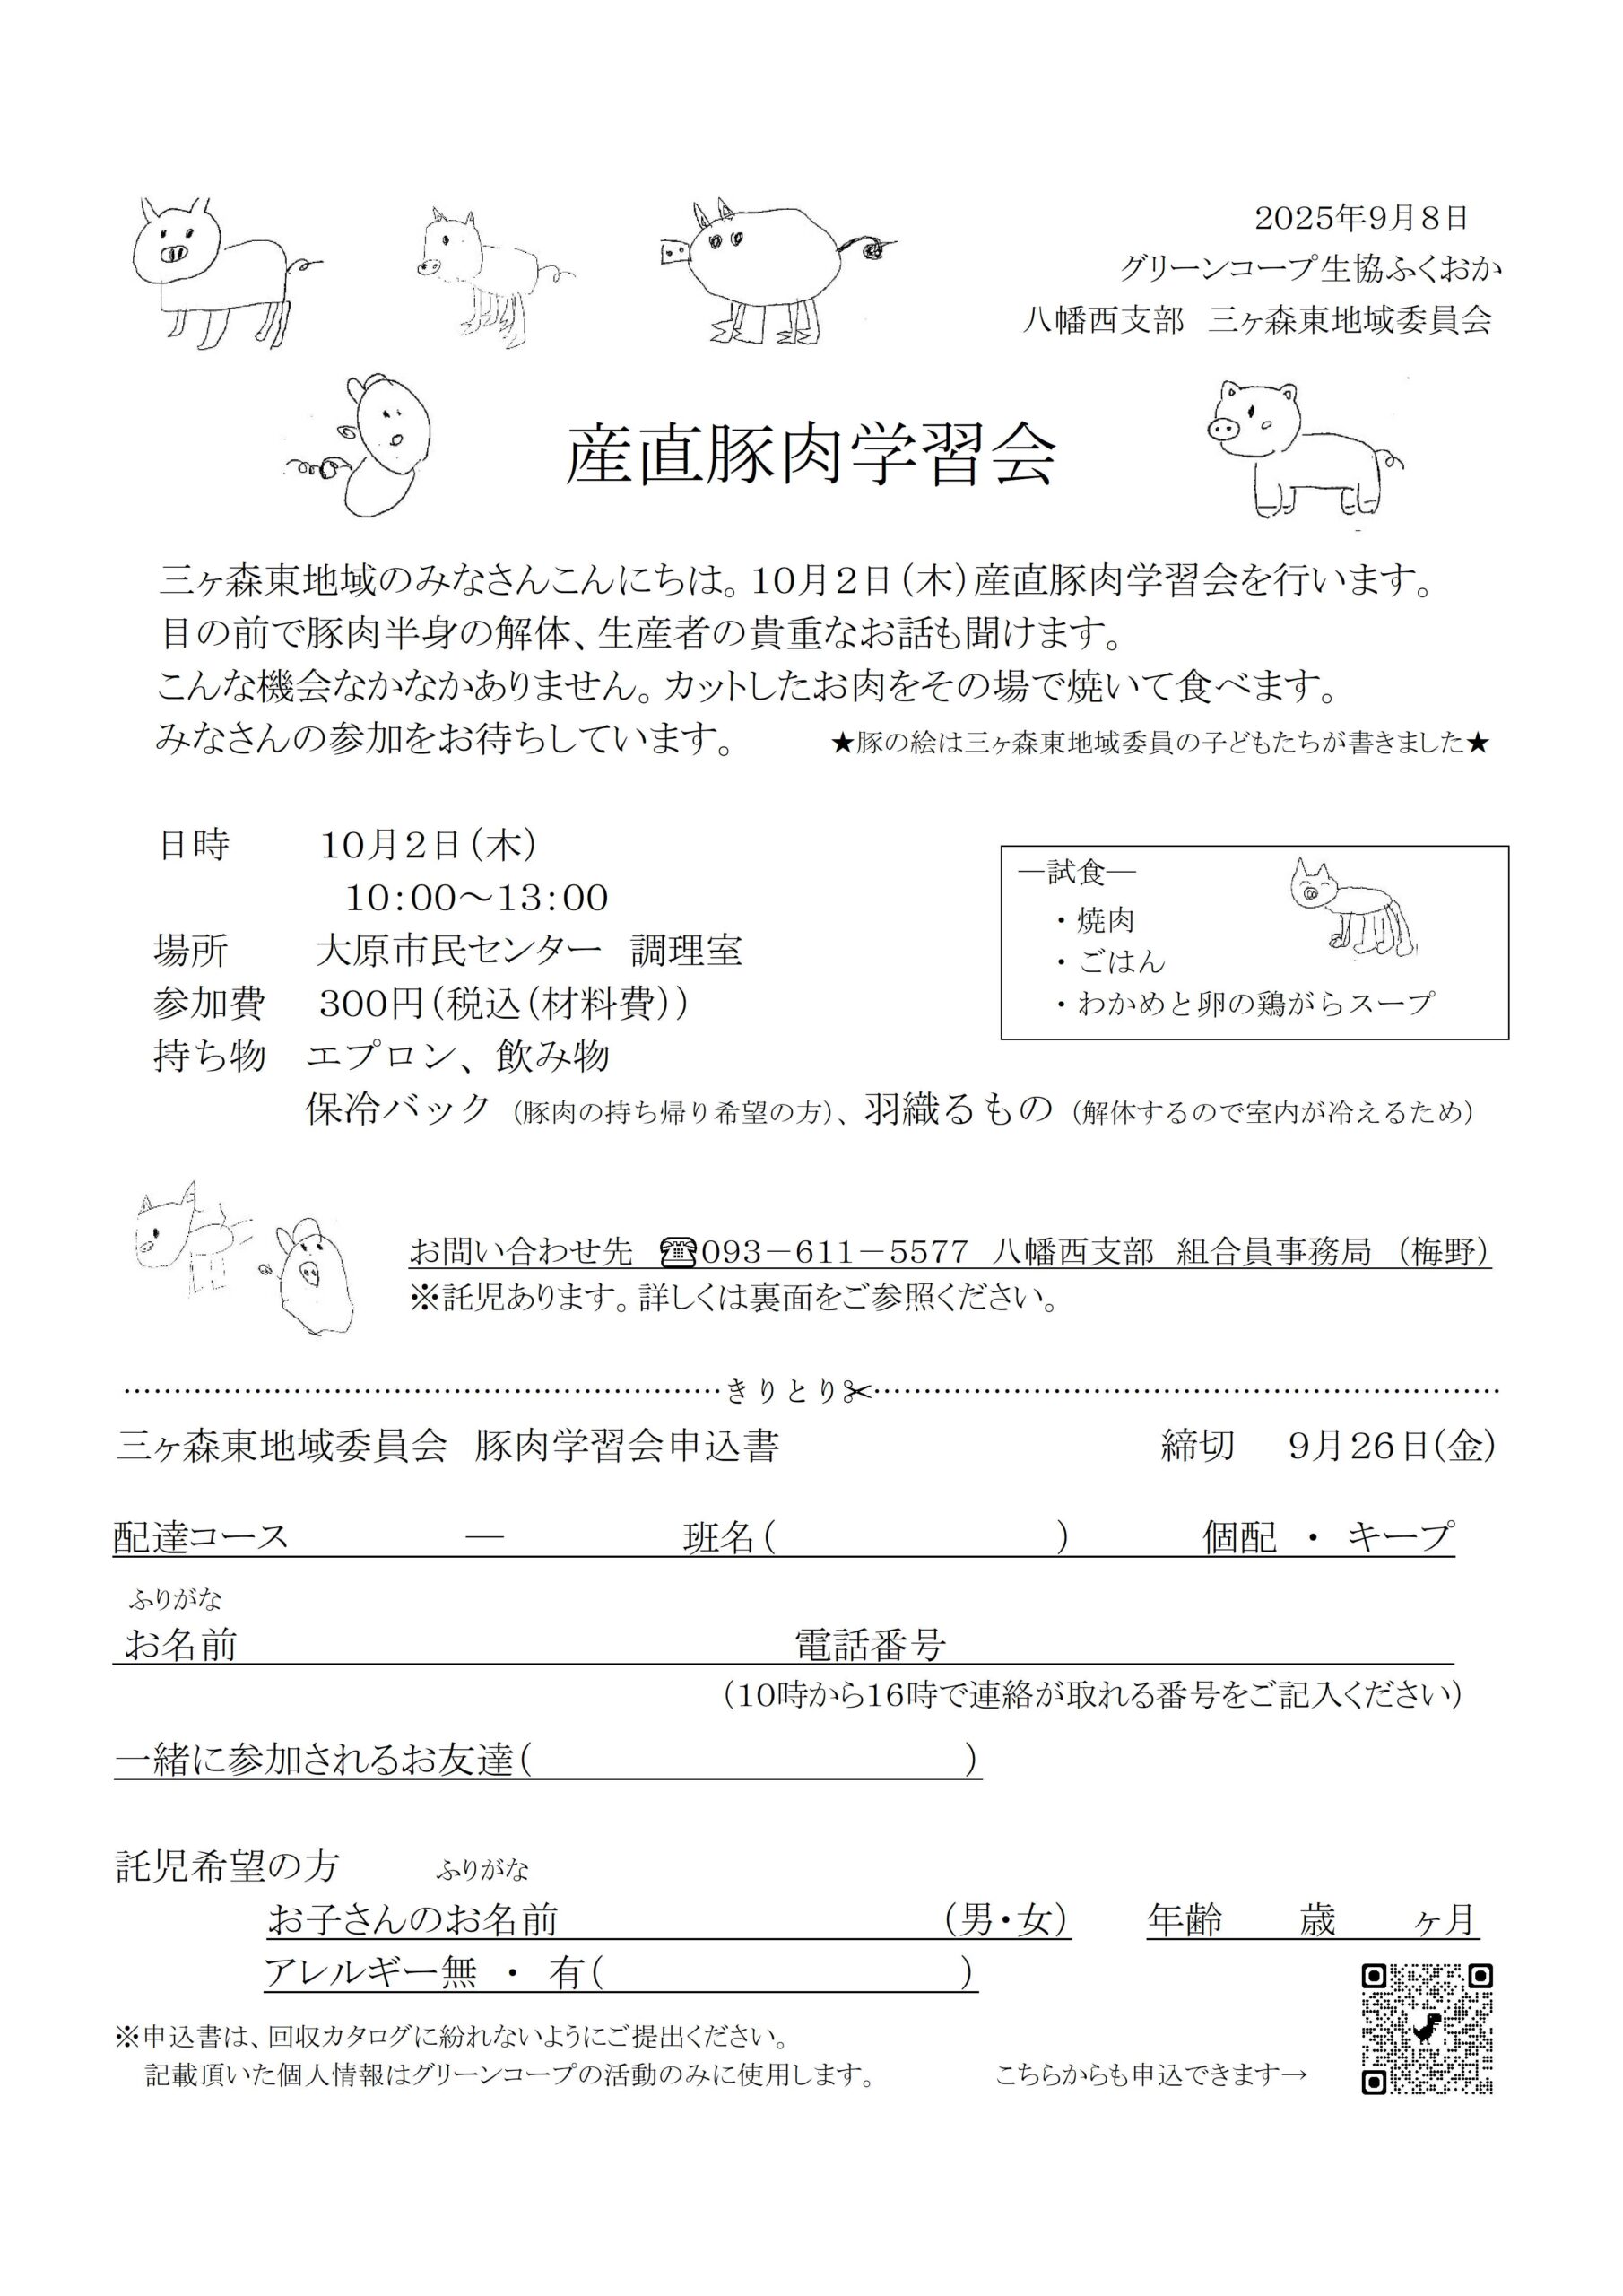 2025年9月8日
グリーンコープ生協ふくおか
八幡西支部　三ヶ森東地域委員会
産直豚肉学習会
三ヶ森東地域のみなさんこんにちは。10月2日（木）産直豚肉学習会を行います。
目の前で豚肉半身の解体、生産者の貴重なお話も聞けます。
こんな機会なかなかありません。カットしたお肉をその場で焼いて食べます。
みなさんの参加をお待ちしています。　★豚の絵は三ヶ森東地域委員の子どもたちが書きました★
日時　10月2日（木）
10:00～13:00
場所　大原市民センター　調理室
参加費　300円（税込（材料費））
持ち物　エプロン、飲み物
保冷バック（豚肉の持ち帰り希望の方）、羽織るもの（解体するので室内が冷えるため）
―試食―
・焼肉
・ごはん
・わかめと卵の鶏がらスープ
お問い合わせ先　☎093－611－5577　八幡西支部　組合員事務局　（梅野）
※託児あります。詳しくは裏面をご参照ください。
きりとり✂
三ヶ森東地域委員会　豚肉学習会申込書　締切　9月26日(金)
配達コース　―　班名（　）　個配　・　キープ
ふりがな
お名前　電話番号
（10時から16時で連絡が取れる番号をご記入ください）
一緒に参加されるお友達（　）
託児希望の方　ふりがな
お子さんのお名前　（男・女）　年齢　歳　ヶ月
アレルギー無　・　有（　）
※申込書は、回収カタログに紛れないようにご提出ください。
記載頂いた個人情報はグリーンコープの活動のみに使用します。　こちらからも申込できます→